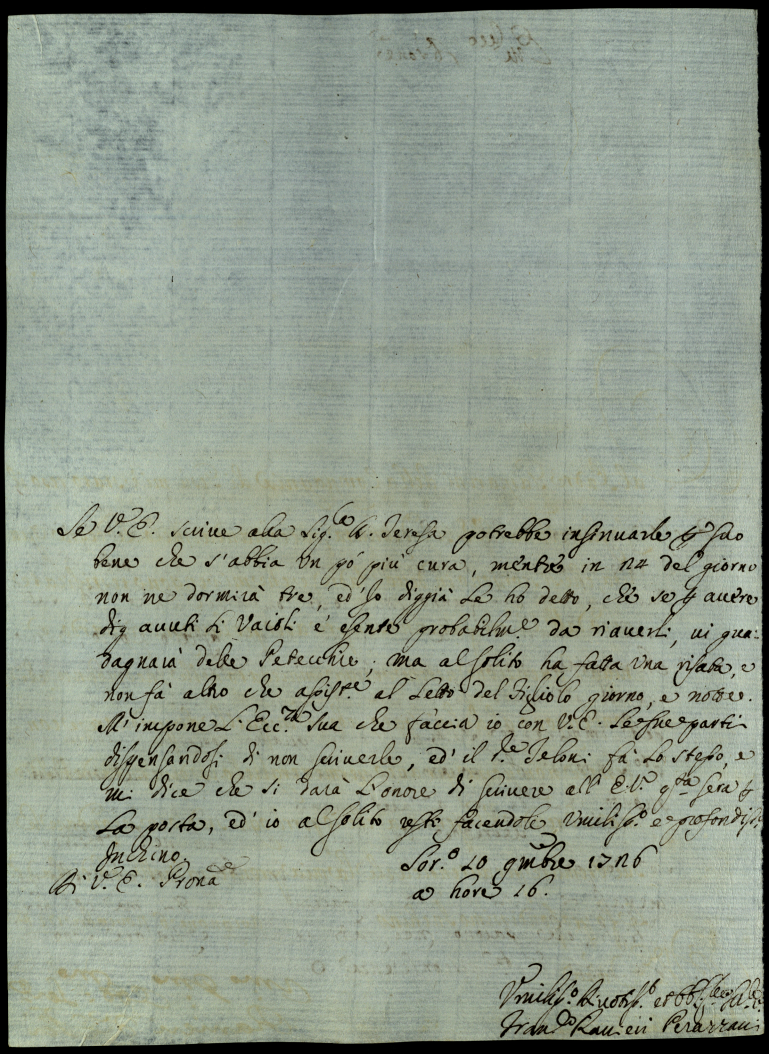 Se V. E. scrive alla Sig.ra D. Teresa potrebbe insinuarle p suo
bene che s'abbia un pó piu cura, mentre in 24 del giorno
non ne dormirà tre, ed' Io diggià Le hò detto, che se p avere
digg avuti li Vaioli é esente probabilm.e da riaverli, vi gua:
dagnarà delle Petecchie, ma al solito ha fatta una risata, e
non fà altro che assist.e al Letto del Figliolo giorno, e notte.
M' impone L'Ecc.za Sua che faccia io con V. E. Le sue parti
dispensandosi di non scriverle, ed' il Feloni fà Lo stesso, e
mi dice che si darà L'onore di scrivere all' E. V. q.ta sera p
La posta, ed' io al solito resto facendole Umiliss.o e profondiss.o
Inchino
Di V. E. Prona
Sor.o 20 9mbre 1726
a hore 16.
Umiliss.o Devotiss.o et Obb.
Fran.co Ranieri Perazzani